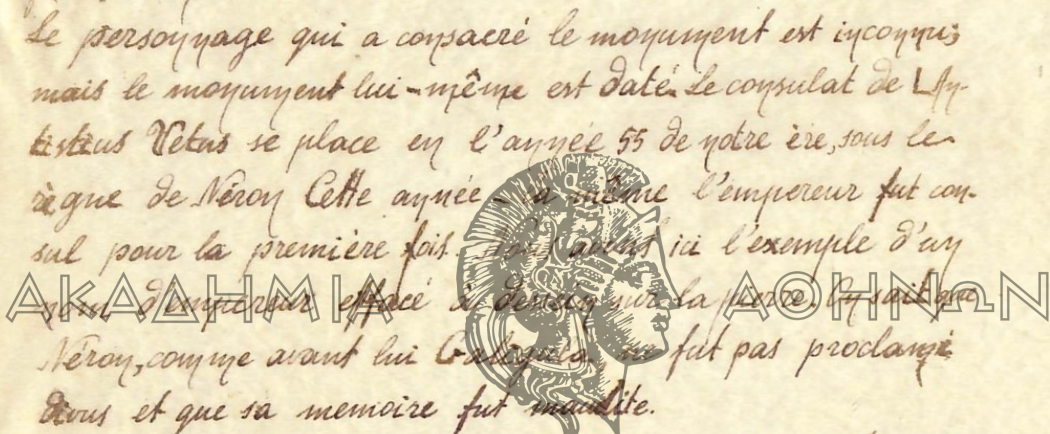 Le personnage qui a consacré le monument est inconnu;
mais le monument lui-même est daté. Le consulat de L An-
tistius Vetus se place en l'année 55 de notre ère, sous le
règne de Néron Cette année-là même l'empereur fut con-
sul pour la première fois. Nous avons ici l'exemple d'un
nom d'empereur effacé à dessein sur la pierre. On sait que
ΑΚΑΔΗΜΙΑ ΑΘΗΝΩΝ
Néron, comme avant lui Caligula ne fut pas proclamé
divus et que sa memoire fut maudite.